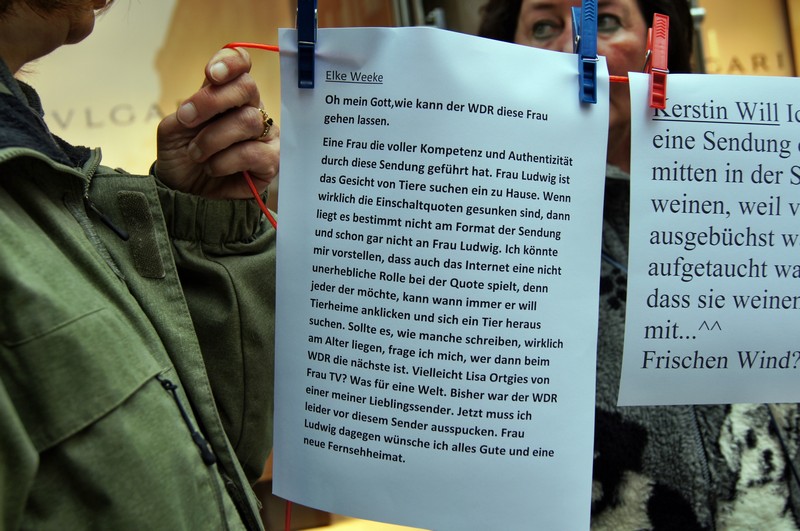 VLGARI
BVLGARI
Elke Weeke
Oh mein Gott,wie kann der WDR diese Frau
gehen lassen.
Eine Frau die voller Kompetenz und Authentizität
durch diese Sendung geführt hat. Frau Ludwig ist
das Gesicht von Tiere suchen ein zu Hause. Wenn
wirklich die Einschaltquoten gesunken sind, dann
liegt es bestimmt nicht am Format der Sendung
und schon gar nicht an Frau Ludwig. Ich könnte
mir vorstellen, dass auch das Internet eine nicht
unerhebliche Rolle bei der Quote spielt, denn
jeder der möchte, kann wann immer er will
Tierheime anklicken und sich ein Tier heraus
suchen. Sollte es, wie manche schreiben, wirklich
am Alter liegen, frage ich mich, wer dann beim
WDR die nächste ist. Vielleicht Lisa Ortgies von
Frau TV? Was für eine Welt. Bisher war der WDR
einer meiner Lieblingssender. Jetzt muss ich
leider vor diesem Sender ausspucken. Frau
Ludwig dagegen wünsche ich alles Gute und eine
neue Fernsehheimat.
Kerstin Will
eine Sendung
mitten in der S
weinen, weil v
ausgebüchst w
aufgetaucht wa
dass sie weinen
mit...^^
Frischen Wind?